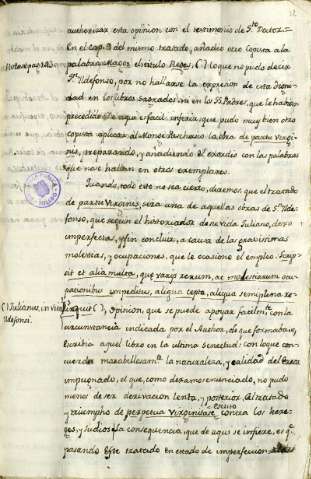 12
authorizar esta opinion con el testimonio de Sto. Doctor.
En el cap. 3 del mismo tratado, añadio otro Copista a la
palabra Magos el titulo Reges, ( ) lo que no pudo decir
Sn. Ildefonso, por no hallarse la expresion de esta digni-
dad en los libros Sagrados ni en los SS. Padres, que le havian
precedido. De aqui es facil inferir, que pudo muy bien otro
copista aplicar al Monge Paschasio la obra de partu Virgi-
nis, preparando, y añadiendo el exordio con las palabras
que no se hallan en otros exemplares.
Quando todo esto no sea cierto, diremos que el tratado
de partu Virginis, era una de aquellas obras de Sn. Ilde-
fonso, que segun el historiador de su Vida Juliano, dexo
imperfectas, y sin concluir, a causa de las gravisimas
molestias, y ocupaciones, que le ocasionó el empleo. Scrip-
sit et alia multa, que variis rerum, ac molestiarum occu-
pationibus impeditus, aliqua cepta, aliqua semiplena re-
( ) Julianus, in vita Ildefonsi.
liquit ( ), opinion, que se puede apoyar facilmte. con la
circunstancia indicada por el Author, de que formaba, o
escribia aquel libro en la ultima senectud: con lo que con-
cuerda marabillosamte. la naturaleza, y calidad del
impugnado, el que, como dexamos enunciado, no pudo
menos de ser derivacion lenta, y posterior al tratado
y triumpho de perpetua Virginitate contra los here-
ges, y Judios: la consecuencia, que de aqui se infiere, es qe.
pasando este tratado en estado de imperfeccion